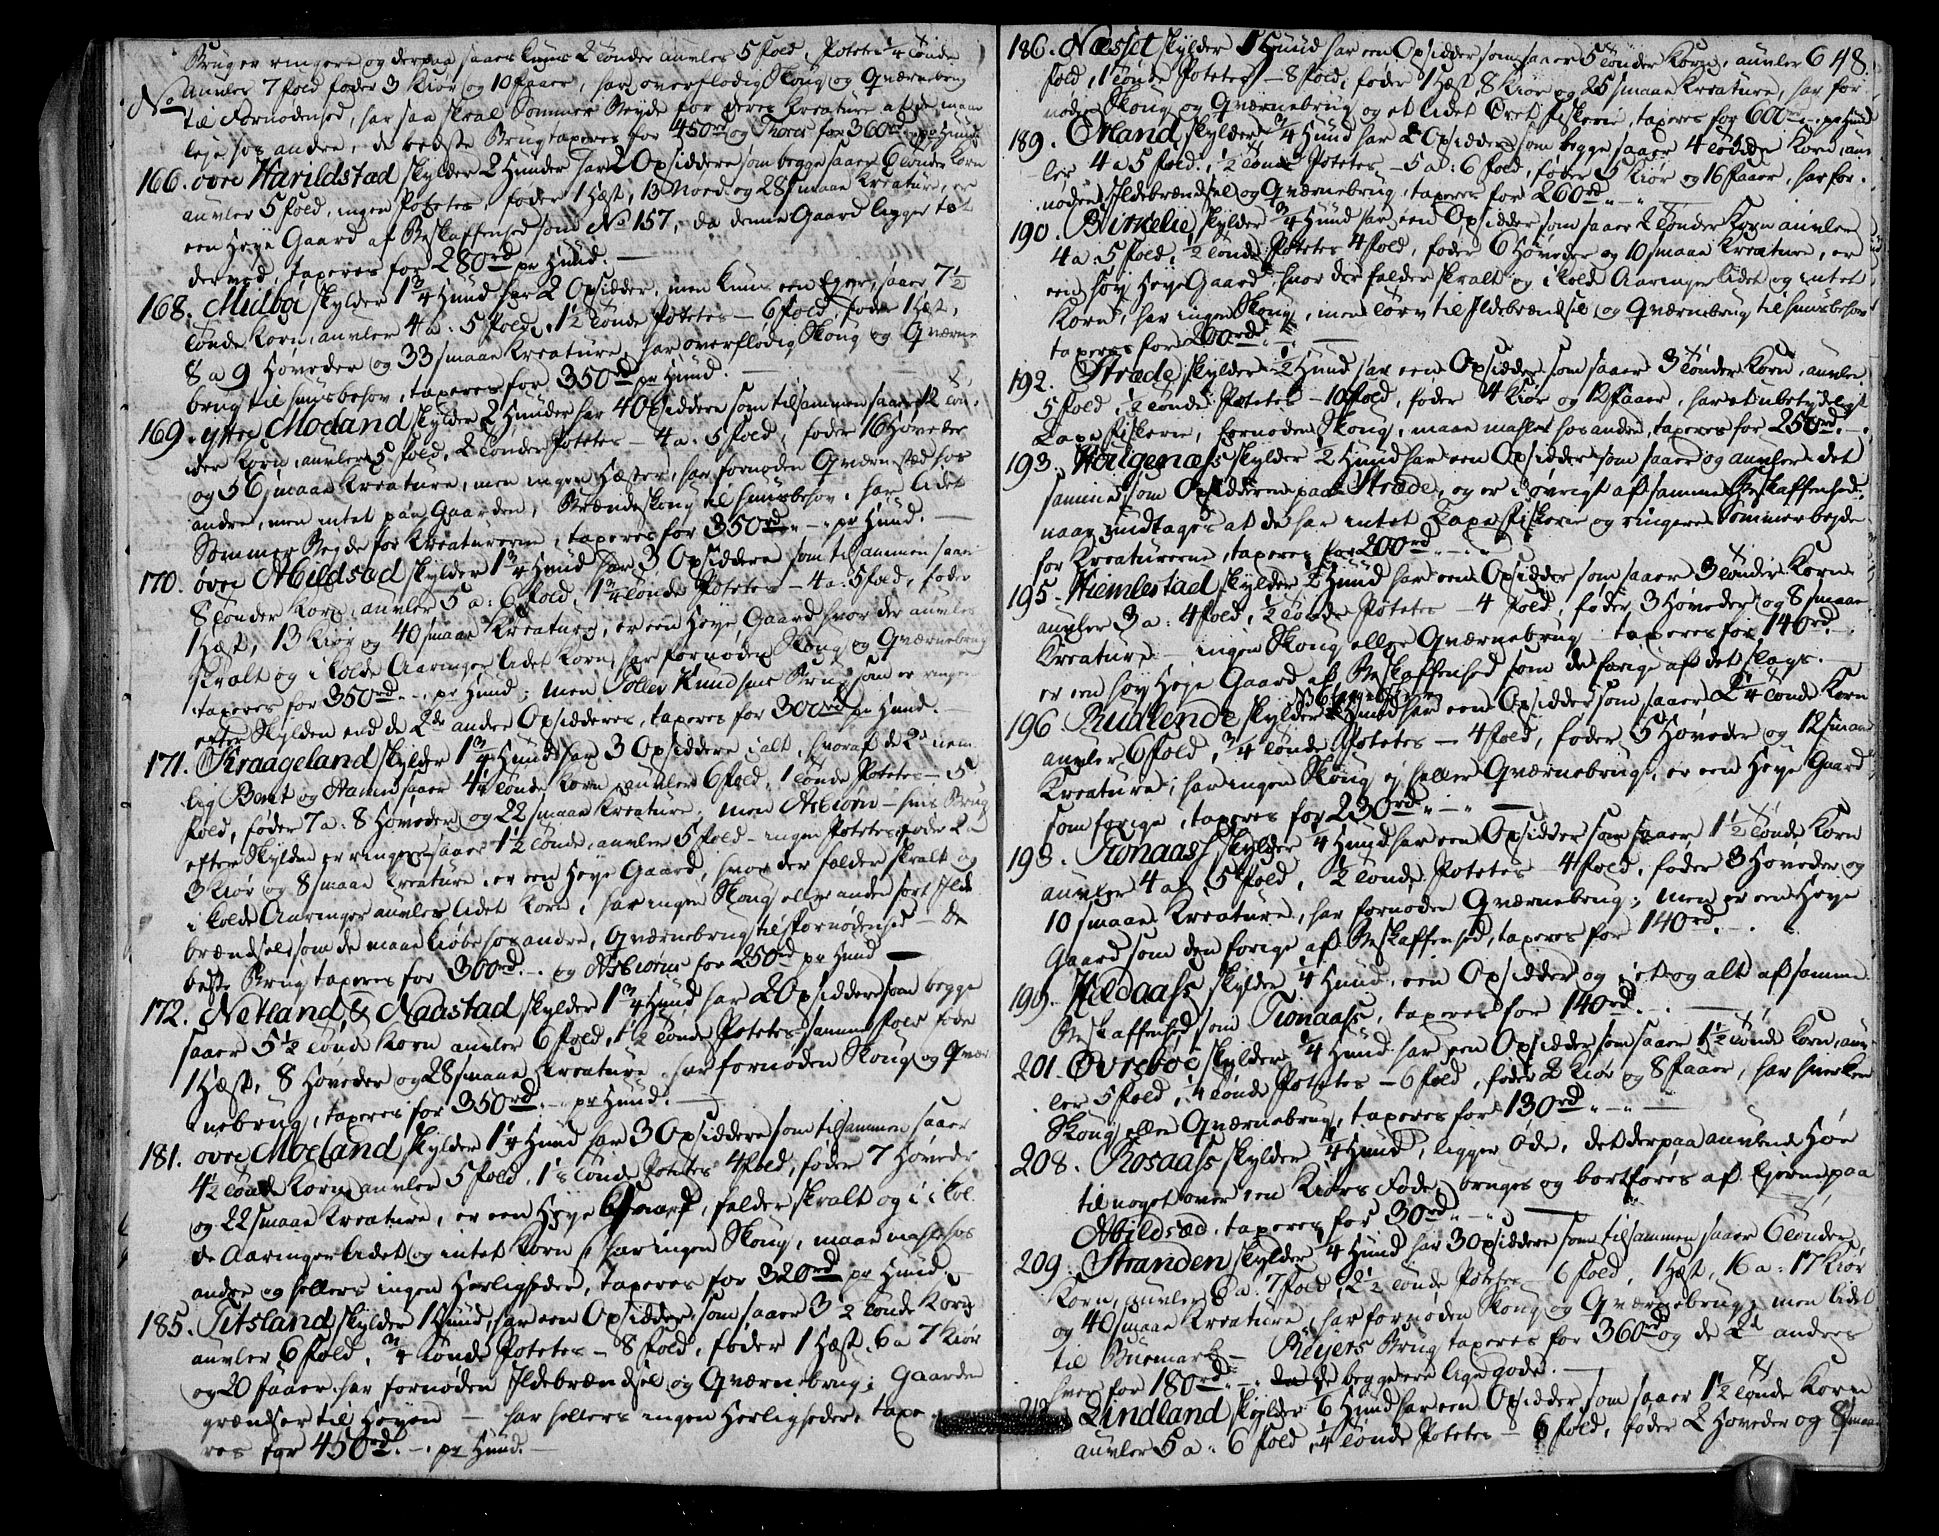 Brug er ringere og derpaa saaes kuns 2 tønder auvles 5 fold, Potetes 1/4 tønde
No Auvles 7 fold føder 3 Kiør og 10 faaer, har overflødig Skoug og Qværnebrug
til Fornødenhed, har saa skral Sommer Beyde for deres Kreature at de maae
leje hos andre, de bedste Brug taxeres for 450rd og Thores for 360rd pr Hund.
166. øvre Harildstad skylder 2 Hunder har 2 Opsiddere som begge saaer 6 tønder Korn
auvler 5 fold, ingen Potetes, føder 1 Hæst, 13 Nød og 28 smaae Kreature, er
een Heye Gaard af Beskaffenhed som No 157, da denne Gaard ligger tæt
derved, taxeres for 280rd pr Hund. —
168. Midbøe skylder 1 3/4 Hund har 2 Opsidder, men kuns een Eyer, saaer 7 1/2
tønde Korn, auvler 4 a: 5 fold, 1 1/2 tønde Potetes — 6 fold, føder 1 Hæst,
8 a 9 Høveder og 33 smaae Kreature, har overflødig Skoug og Qværne
brug til huusbehov, taxeres for 350rd pr Hund. —
169. yttre Moeland skylder 2 Hunder har 4 Opsiddere som tilsammen saaer 12 tøn-
der Korn, auvler 5 fold, 2 tønder Potetes — 4 a: 5 fold, føder 16 Høveder
og 56 smaae Kreature, men ingen Hæster, har fornøden Qværnstæd hos
andre, men intet paa Gaarden, Brændeskoug til huusbehov, har lidet
Sommer Beyde for Kreaturerne, taxeres for 350rd „ — „ pr Hund. —
170. øvre Abildsød skylder 1 3/4 Hund har 3 Opsiddere som tilsammen saaer
8 tønder Korn, auvler 5 a: 6 fold, 1 3/4 tønde Potetes — 4 a: 5 fold, føder
1 Hæst, 13 Kiør og 40 smaae Kreature, er een Heye Gaard hvor der auvles
skralt og i kolde Aaringer lidet Korn, har fornøden Skoug og Qværnebrug
taxeres for 350rd. — . pr Hund; men Tollev Knudsens Brug som er ringere
efter Skylden end de 2de andre Opsidderes, taxeres for 300rd pr Hund. —
171. Kraageland skylder 1 3/4 Hund har 3 Opsiddere i alt, hvoraf de 2de nem-
lig Bent og Aanen saaer 4 1/2 tønde Korn auvler 6 fold, 1 tønde Potetes — 5
fold, føder 7 a: 8 Høveder og 22 smaae Kreature, men Asbiørn — hvis Brug
efter Skylden er ringere saaer 1 1/2 tønde, auvler 5 fold — ingen Potetes, føder 2 a
3 Kiør og 8 smaae Kreature, er een Heye Gaard, hvor der falder skralt og
i kolde Aaringer auvles lidet Korn, har ingen Skoug eller anden sort Ilde
brændsel som de maae kiøbe hos andre, Qværnebrug til fornødenhed — de
beste Brug taxeres for 300rd. — . og Asbiørns for 250rd pr Hund —
172. Netland & Naastad skylder 1 3/4 Hund har 2 Opsiddere som begge
saaer 5 1/2 tønde Korn auvler 6 fold, 1 1/2 tønde Potetes samme fold føde
1 Hæst, 8 Høveder og 28 smaae Kreature, har fornøden Skoug og Qvær
nebrug, taxeres for 350rd. — . pr Hund. —
181. øvre Moeland skylder 1 1/4 Hund har 3 Opsiddere som tilsammen saaer
4 1/2 tønde Korn auvler 5 fold, 1 1/8 tønde Potetes 4 fold, føder 7 Høveder
og 22 smaae Kreature, er een Heye Gaard, falder skralt og i kol
de Aaringer lidet og intet Korn, har ingen Skoug, maae mahle hos
andre og hellers ingen Herligheder, taxeres for 320rd pr Hund —
185. Titsland skylder 1 Hund, har een Opsidder som saaer 3 1/2 tønde Korn
auvler 6 fold, 3/4 tønde Potetes — 8 fold, føder 1 Hæst, 6 a 7 Kiør
og 20 faaer har fornøden Ildebrændsel og Qværnebrug; Gaarden
grændser til Heyen — har hellers ingen Herligheder, taxe-
res for 450rd. — . pr Hund. —
186. Næsset skylder 1 Hund har een Opsidder som saaer 5 tønder Korn, auvler 6 648.
fold, 1 tønde Potetes — 8 fold, føder 1 Hæst, 8 Kiør og 25 smaae Kreature, har for
nøden Skoug og Qværnebrug og et lidet Øret fiskerie, taxeres for 600rd „ — „ pr Hund
189. Ørland skylder 3/4 Hund har 2 Opsiddere som begge saaer 4 tønder Korn, auv
ler 4 a 5 fold, 1/2 tønde Potetes — 5 a: 6 fold, føder 5 Kiør og 16 faaer, har for-
nøden Ildebrændsel og Qværnebrug, taxeres for 260rd „ — „
190. Birkelie skylder 3/4 Hund har een Opsidder som saaer 2 tønder Korn auvler
4 a 5 fold, 1/2 tønde Potetes 4 fold, føder 6 Høveder og 10 smaae Kreature, er
een høy Heye Gaard, hvor der falder skralt og i kolde Aaringer lidet og intet
Korn, har ingen Skoug, men tørv til Ildebrændsel og Qværnebrug til huusbehov
taxeres for 200rd „ — „ —
192. Stræde skylder 1/2 Hund har een Opsidder som saaer 3 tønder Korn, auvler
5 fold, 1/2 tønde Potetes — 10 fold, føder 4 Kiør og 12 faaer, har et ubetydeligt
Laxe fiskerie, fornøden Skoug, maae mahle hos andre, taxeres for 250rd. — .
193. Houigenæss skylder 1/2 Hund har een Opsidder som saaer og auvler det
samme som Opsidderen paa Stræde, og er i øvrigt af samme Beskaffenhed
naar undtages at de har intet Laxe fiskerie og ringere Sommer beyde
for Kreaturerne, taxeres for 200rd „ — „
195. Hiemlestad skylder 1/2 Hund har een Opsidder som saaer 3 tønder Korn
auvler 3 a: 4 fold, 1/2 tønde Potetes — 4 fold, føder 3 Høveder og 8 smaae
Kreature — ingen Skoug eller Qværnebrug taxeres for 140rd. — .
er een høy Heye Gaard af Beskaffenhed som de forige af det slags. —
196 Rudlende skylder Hund har een Opsidder som saaer 2 1/4 tønde Korn
auvler 6 fold, 3/4 tønde Potetes — 4 fold, føder 5 Høveder og 12 smaae
Kreature, har ingen Skoug ej heller Qværnebrug, er een Heye Gaard
som forige, taxeres for 230rd „ — „ —
198. Tronaass skylder 1/4 Hund har een Opsidder som saaer 1 1/2 tønde Korn
auvler 4 a: 5 fold, 1/2 tønde Potetes — 4 fold, føder 3 Høveder og
10 smaae Kreature, har fornøden Qværnebrug; men er een Heye
Gaard som den forige af Beskaffenhed, taxeres for 140rd. — .
199. Hildaass skylder 1/4 Hund, een Opsidder og i et og alt af samme
Beskaffenhed som Tronaass, taxeres for 140rd. — .
201. Øvreboe skylder 1/4 Hund har een Opsidder som saaer 1 1/2 tønde Korn, auv-
ler 5 fold, 1/4 tønde Potetes — 6 fold, føder 2 Kiør og 8 faaer, har hverken
Skoug eller Qværnebrug, taxeres for 130rd „ — „ —
208. Rosaass skylder 1/4 Hund, ligger øde, det derpaa auvlende Høe
til noget over een Kiørs Føde, bruges og bortføres af Ejerne paa
Abildsød, taxeres for 30rd „ — „ —
209. Stranden skylder 1/4 Hund har 3 Opsiddere som tilsammen saaer 6 tønder
Korn, auvler 6 a: 7 fold, 2 1/2 tønde Potetes — 6 fold, 1 Hæst, 16 a: 17 Kiør
og 40 smaae Kreature, har fornøden Skoug og Qværnebrug, men lidet
til Buemark — Reijers Brug taxeres for 360rd og de 2de andres
hver for 180rd „ — „ de begge ere lige gode. —
Lindland skylder 6 Hund har een Opsidder som saaer 1 1/2 tønde Korn
auvler 5 a: 6 fold, 1/4 tønde Potetes — 6 fold, føder 2 Høveder og 8 smaae